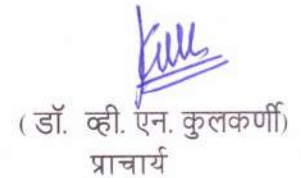 ( डॉ. व्ही. एन. कुलकर्णी)
प्राचार्य